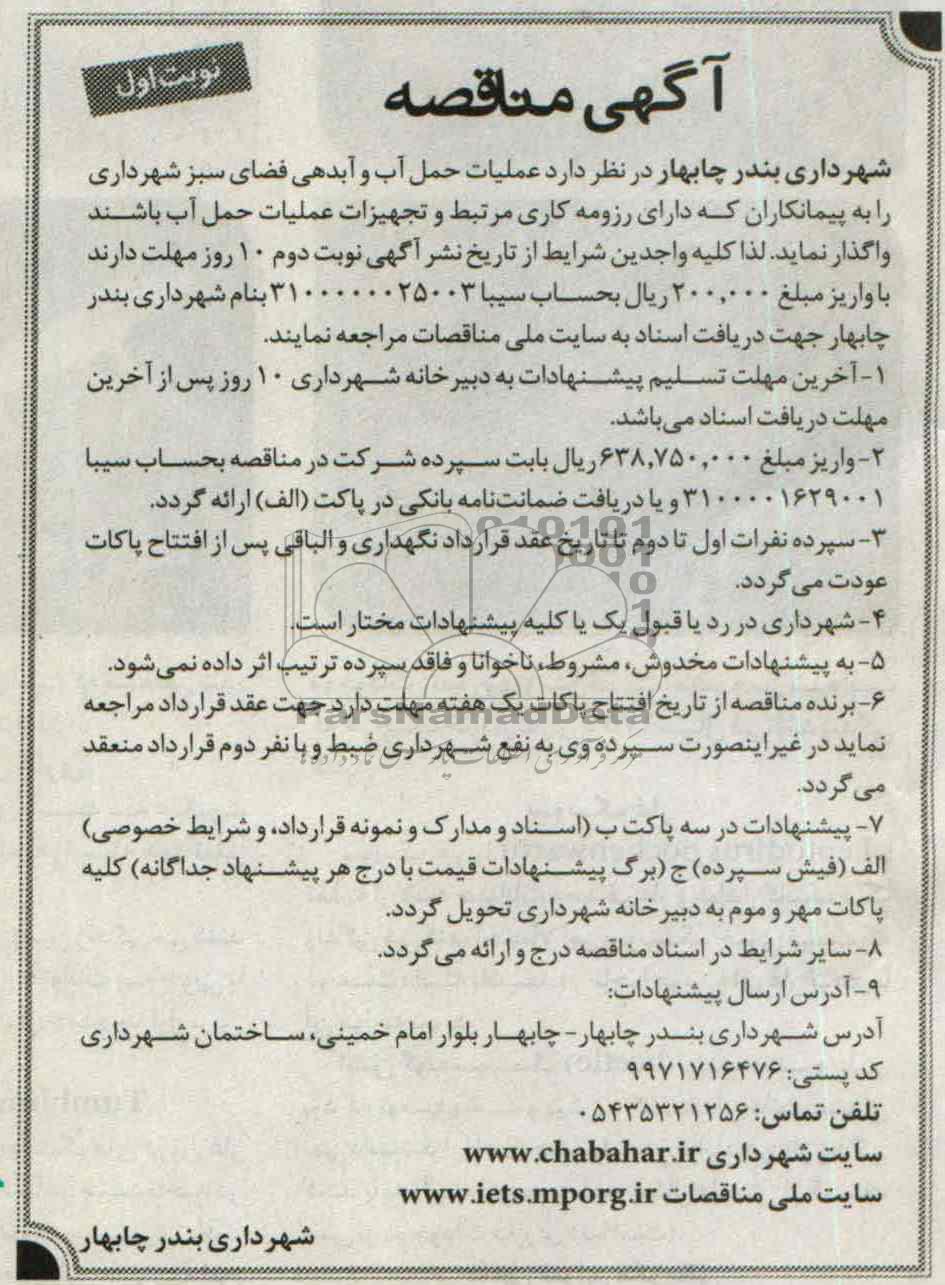 نوبت اول
آگهی مناقصه
شهرداری بندر چابهار در نظر دارد عملیات حمل آب و آبدهی فضای سبز شهرداری
را به پیمانکاران کـه دارای رزومه کاری مرتبط و تجهیزات عملیات حمل آب باشـند
واگذار نماید. لذا کلیه واجدین شرایط از تاریخ نشر آگهی نوبت دوم ۱۰ روز مهلت دارند
با واریز مبلغ ۲۰۰,۰۰۰ ریال بحسـاب سیبا ۳۱۰۰۰۰۰۰۲۵۰۰۳ بنام شهرداری بندر
چابهار جهت دریافت اسناد به سایت ملی مناقصات مراجعه نمایند.
۱-آخرین مهلت تسـلیم پیشـنهادات به دبیرخانه شـهرداری ۱۰ روز پس از آخرین
مهلت دریافت اسناد می‌باشد.
۲-واریز مبلغ ۶۳۸,۷۵۰,۰۰۰ ریال بابت سـپرده شـرکت در مناقصه بحسـاب سیبا
۳۱۰۰۰۰۱۶۲۹۰۰۱ و یا دریافت ضمانت‌نامه بانکی در پاکت (الف) ارائه گردد.
۳-سپرده نفرات اول تا دوم تا تاریخ عقد قرارداد نگهداری و الباقی پس از افتتاح پاکات
عودت می‌گردد.
۴-شهرداری در رد یا قبول یک یا کلیه پیشنهادات مختار است.
۵-به پیشنهادات مخدوش، مشروط، ناخوانا و فاقد سپرده ترتیب اثر داده نمی‌شود.
۶-برنده مناقصه از تاریخ افتتاح پاکات یک هفته مهلت دارد جهت عقد قرارداد مراجعه
ParsNamadData
نماید در غیر اینصورت سـپرده وی به نفع شـهرداری ضبط و با نفر دوم قرارداد منعقد
می‌گردد.
۷-پیشنهادات در سه پاکت ب (اسـناد و مدارک و نمونه قرارداد، و شرایط خصوصی)
الف (فیش سـپرده) ج (برگ پیشـنهادات قیمت با درج هر پیشـنهاد جداگانه) کلیه
پاکات مهر و موم به دبیرخانه شهرداری تحویل گردد.
۸-سایر شرایط در اسناد مناقصه درج و ارائه می‌گردد.
۹-آدرس ارسال پیشنهادات:
آدرس شـهرداری بنـدر چابهار-چابهـار بلوار امام خمینی، سـاختمان شـهرداری
کد پستی: ۹۹۷۱۷۱۶۴۷۶
تلفن تماس: ۰۵۴۳۵۳۲۱۲۵۶
سایت شهرداری www.chabahar.ir
سایت ملی مناقصات www.iets.mporg.ir
شهرداری بندر چابهار